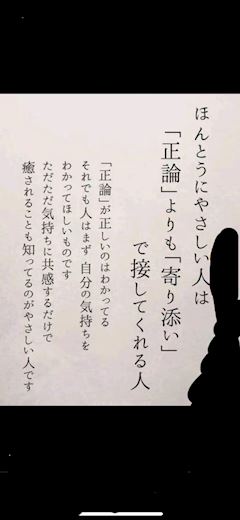 ほんとうにやさしい人は
「正論」よりも「寄り添い」
で接してくれる人
「正論」が正しいのはわかってる
それでも人はまず自分の気持ちを
わかってほしいものです
ただただ気持ちに共感するだけで
癒されることも知ってるのがやさしい人です